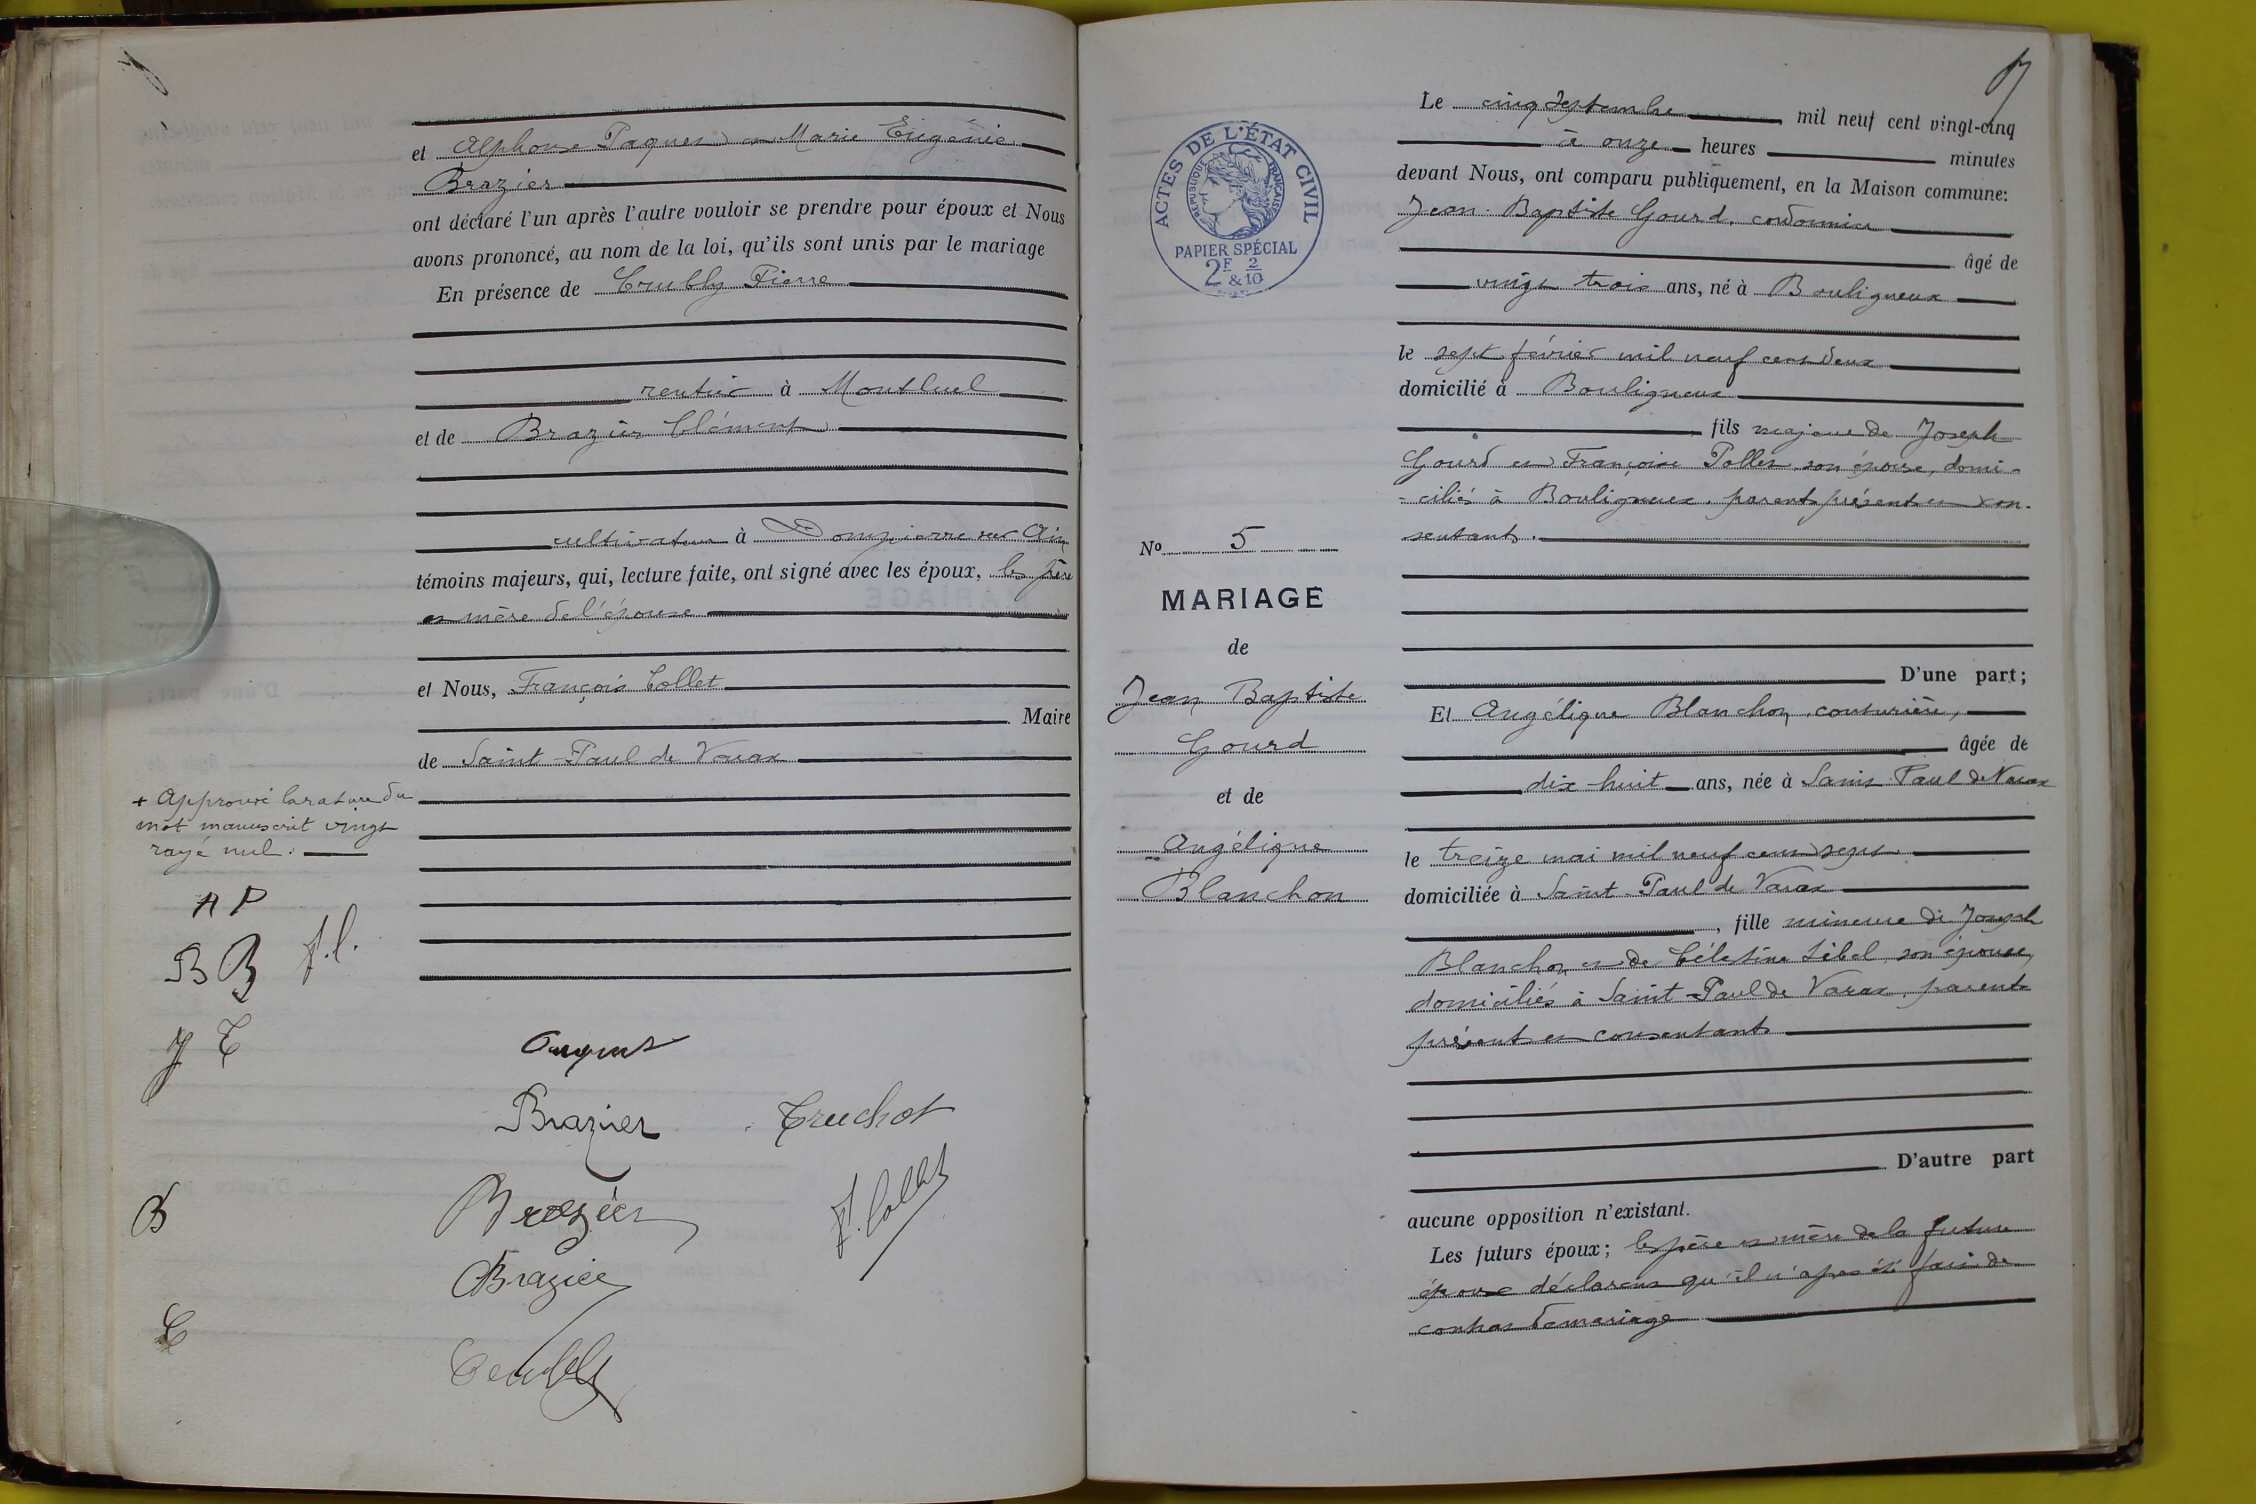 et Alphonse Paques et Marie Eugénie
Brazier
ont déclaré l'un après l'autre vouloir se prendre pour époux et Nous
avons prononcé, au nom de la loi, qu'ils sont unis par le mariage
En présence de Pierre
rentier à Montluel
et de Brazier Clément
cultivateur à Dompierre sur Ain
témoins majeurs, qui, lecture faite, ont signé avec les époux, les père
et mère de l'épouse
et Nous, François Collet
Maire
de Saint-Paul de Varax
+ Approuvé la rature du
mot manuscrit vingt
rayé nul.
A P
B B f.C.
J C
Brazier Cruchot
B
Brazier f. Collet
Brazier
C
Le cinq Septembre mil neuf cent vingt-cinq
à onze heures minutes
devant Nous, ont comparu publiquement, en la Maison commune:
Jean-Baptiste Gourd, cordonnier
âgé de
vingt trois ans, né à Bouligneux
le sept février mil neuf cent deux
domicilié à Bouligneux
fils majeur de Joseph
Gourd et Françoise Pollet son épouse, domi-
-ciliés à Bouligneux. parents présents et con-
sentants.
D'une part;
Et Angélique Blanchon, couturière,
âgée de
dix-huit ans, née à Saint Paul de Varax
le treize mai mil neuf cent sept
domiciliée à Saint-Paul de Varax
, fille mineure de Joseph
Blanchon et de Célestine son épouse,
domiciliés à Saint-Paul de Varax, parents
présents et consentants
D'autre part
aucune opposition n'existant.
Les futurs époux; les père et mère de la future
épouse déclarent qu'il n'a pas été fait de
contrat de mariage
ACTES DE L'ÉTAT CIVIL
RÉPUBLIQUE FRANÇAISE
PAPIER SPÉCIAL
2F & 2/10
No 5
MARIAGE
de
Jean Baptiste
Gourd
et de
Angélique
Blanchon